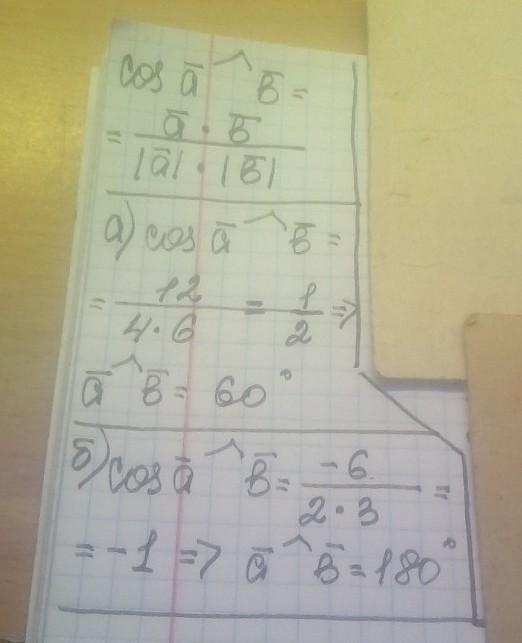 cos a̅ ^ b̅ =
= a̅ · b̅ / |a̅| · |b̅|
а) cos a̅ ^ b̅ =
= 12 / 4·6 = 1/2 =>
a̅ ^ b̅ = 60°
б) cos a̅ ^ b̅ = -6 / 2·3 =
= -1 => a̅ ^ b̅ = 180°